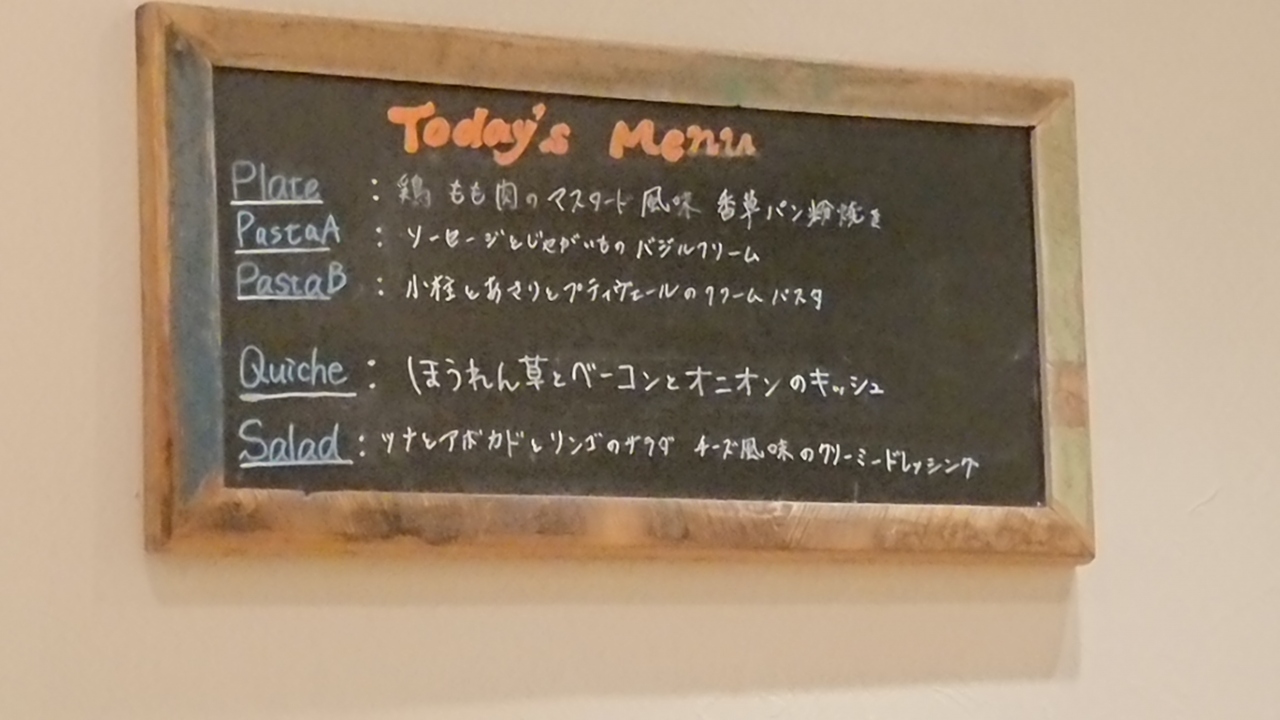 Today's Menu
Plate : 鶏もも肉のマスタード風味 香草パン粉焼き
PastaA : ソーセージとじゃがいもの バジルクリーム
PastaB : 小柱とあさりとプティヴェールのクリームパスタ
Quiche : ほうれん草とベーコンとオニオンのキッシュ
Salad : ツナとアボカドとリンゴのサラダ チーズ風味のクリーミードレッシング